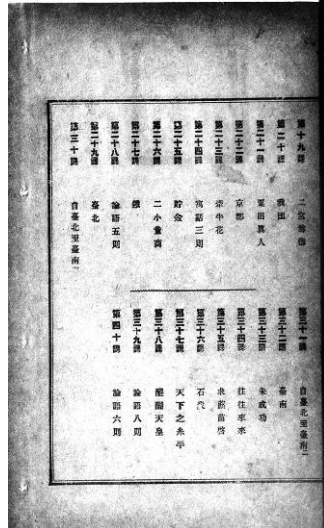 第十九課 二宮尊德
第二十課 我國
第二十一課 粟田眞人
第二十二課 京都
第二十三課 牽牛花
第二十四課 寓話三則
第二十五課 貯金
第二十六課 二小賣商
第二十七課
第二十八課 論語五則
第二十九課 臺北
第三十課 自臺北至臺南一
第三十一課 自臺北至臺南二
第三十二課 臺南
第三十三課 朱成功
第三十四課 往往來來
第三十五課 求菊苗啓
第三十六課 石炭
第三十七課 天下之糸平
第三十八課 醍醐天皇
第三十九課 論語八則
第四十課 論語六則